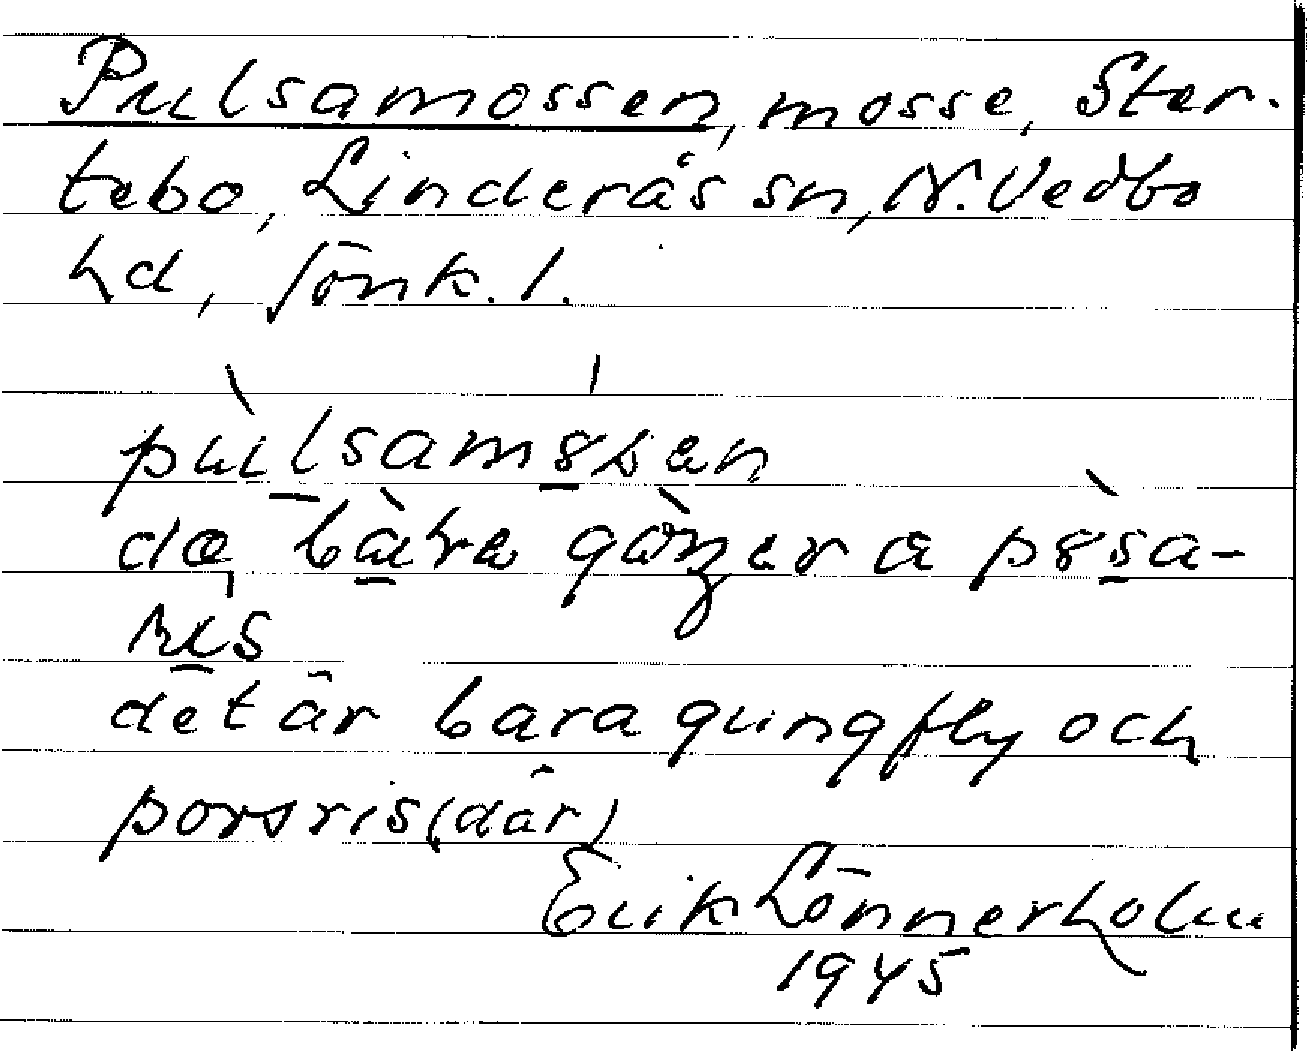 Pulsamossen, mosse, Ster-
tebo, Linderås sn, N. Vedbo
hd, Jönk. l.
pulsam
det är bara gungfly och
porsris (där)
Erik Lönnerholm
1945